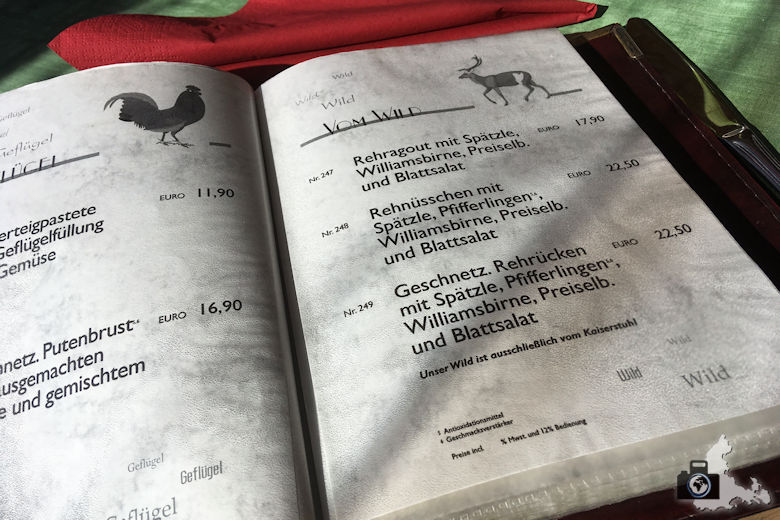 Geflügel
Geflügel
EURO 11,90
erteigpastete
Geflügelfüllung
Gemüse
EURO 16,90
netz. Putenbrust⁵˒⁶
ausgemachten
e und gemischtem
Geflügel
Geflügel
Geflügel
Wild
Wild
Wild
VOM WILD
Nr. 247
Rehragout mit Spätzle, EURO 17,90
Williamsbirne, Preiselb.
und Blattsalat
Nr. 248
Rehnüsschen mit EURO 22,50
Spätzle, Pfifferlingen⁵˒⁶,
Williamsbirne, Preiselb.
und Blattsalat
Nr. 249
Geschnetz. Rehrücken EURO 22,50
mit Spätzle, Pfifferlingen⁵˒⁶,
Williamsbirne, Preiselb.
und Blattsalat
Unser Wild ist ausschließlich vom Kaiserstuhl
Wild
Wild
Wild
5 Antioxidationsmittel
6 Geschmacksverstärker
Preise incl. % Mwst. und 12% Bedienung